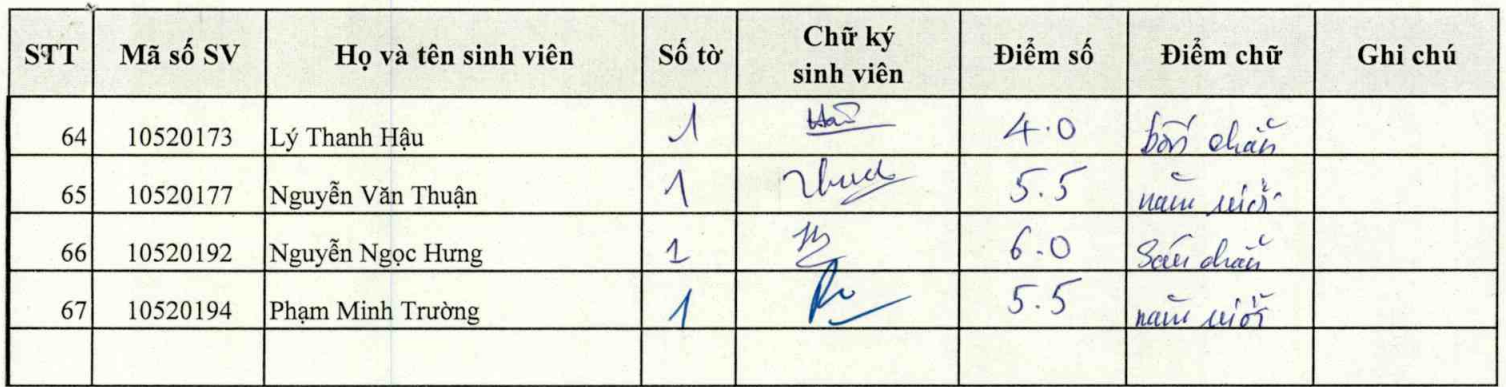 STT Mã số SV Họ và tên sinh viên Số tờ Chữ ký sinh viên Điểm số Điểm chữ Ghi chú
64 10520173 Lý Thanh Hậu 1 Hậu 4.0 bốn chẵn
65 10520177 Nguyễn Văn Thuận 1 5.5 năm rưỡi
66 10520192 Nguyễn Ngọc Hưng 1 6.0 Sáu chẵn
67 10520194 Phạm Minh Trường 1 5.5 năm rưỡi